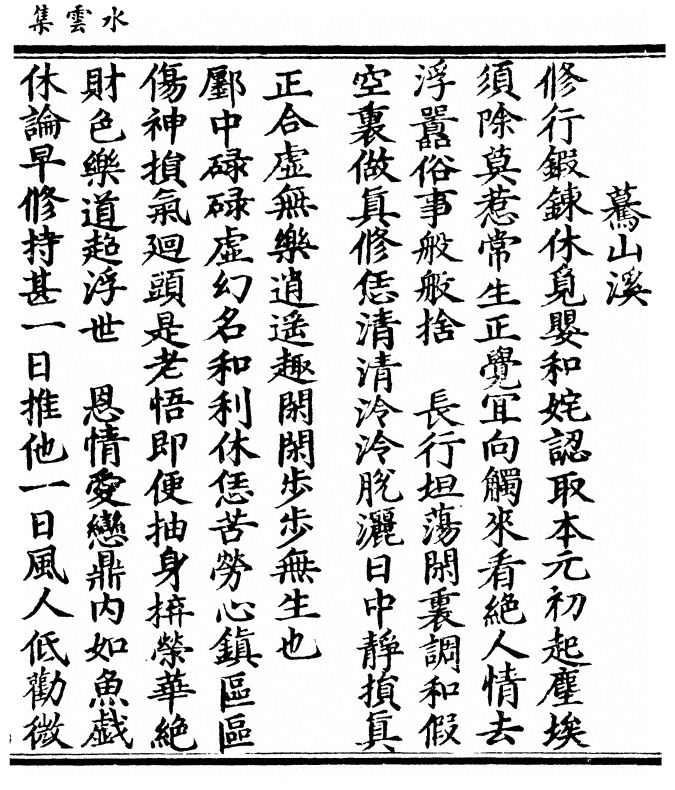 水雲集
驀山溪
修行鍜鍊休覓嬰和姹認取本元初起塵埃
須除莫惹常生正覺宜向觸來看絕人情去
浮囂俗事般般捨　長行坦蕩閑裏調和假
空裏做真修恁清清泠泠脫灑日中靜損真
正合虛無樂逍遥趣閑閑步步無生也
酆中碌碌虛幻名和利休恁苦勞心鎮區區
傷神損氣廻頭是老悟即便抽身搼榮華絕
財色樂道超浮世　恩情愛戀鼎内如魚戯
休論早修持甚一日推他一日風人低勸微